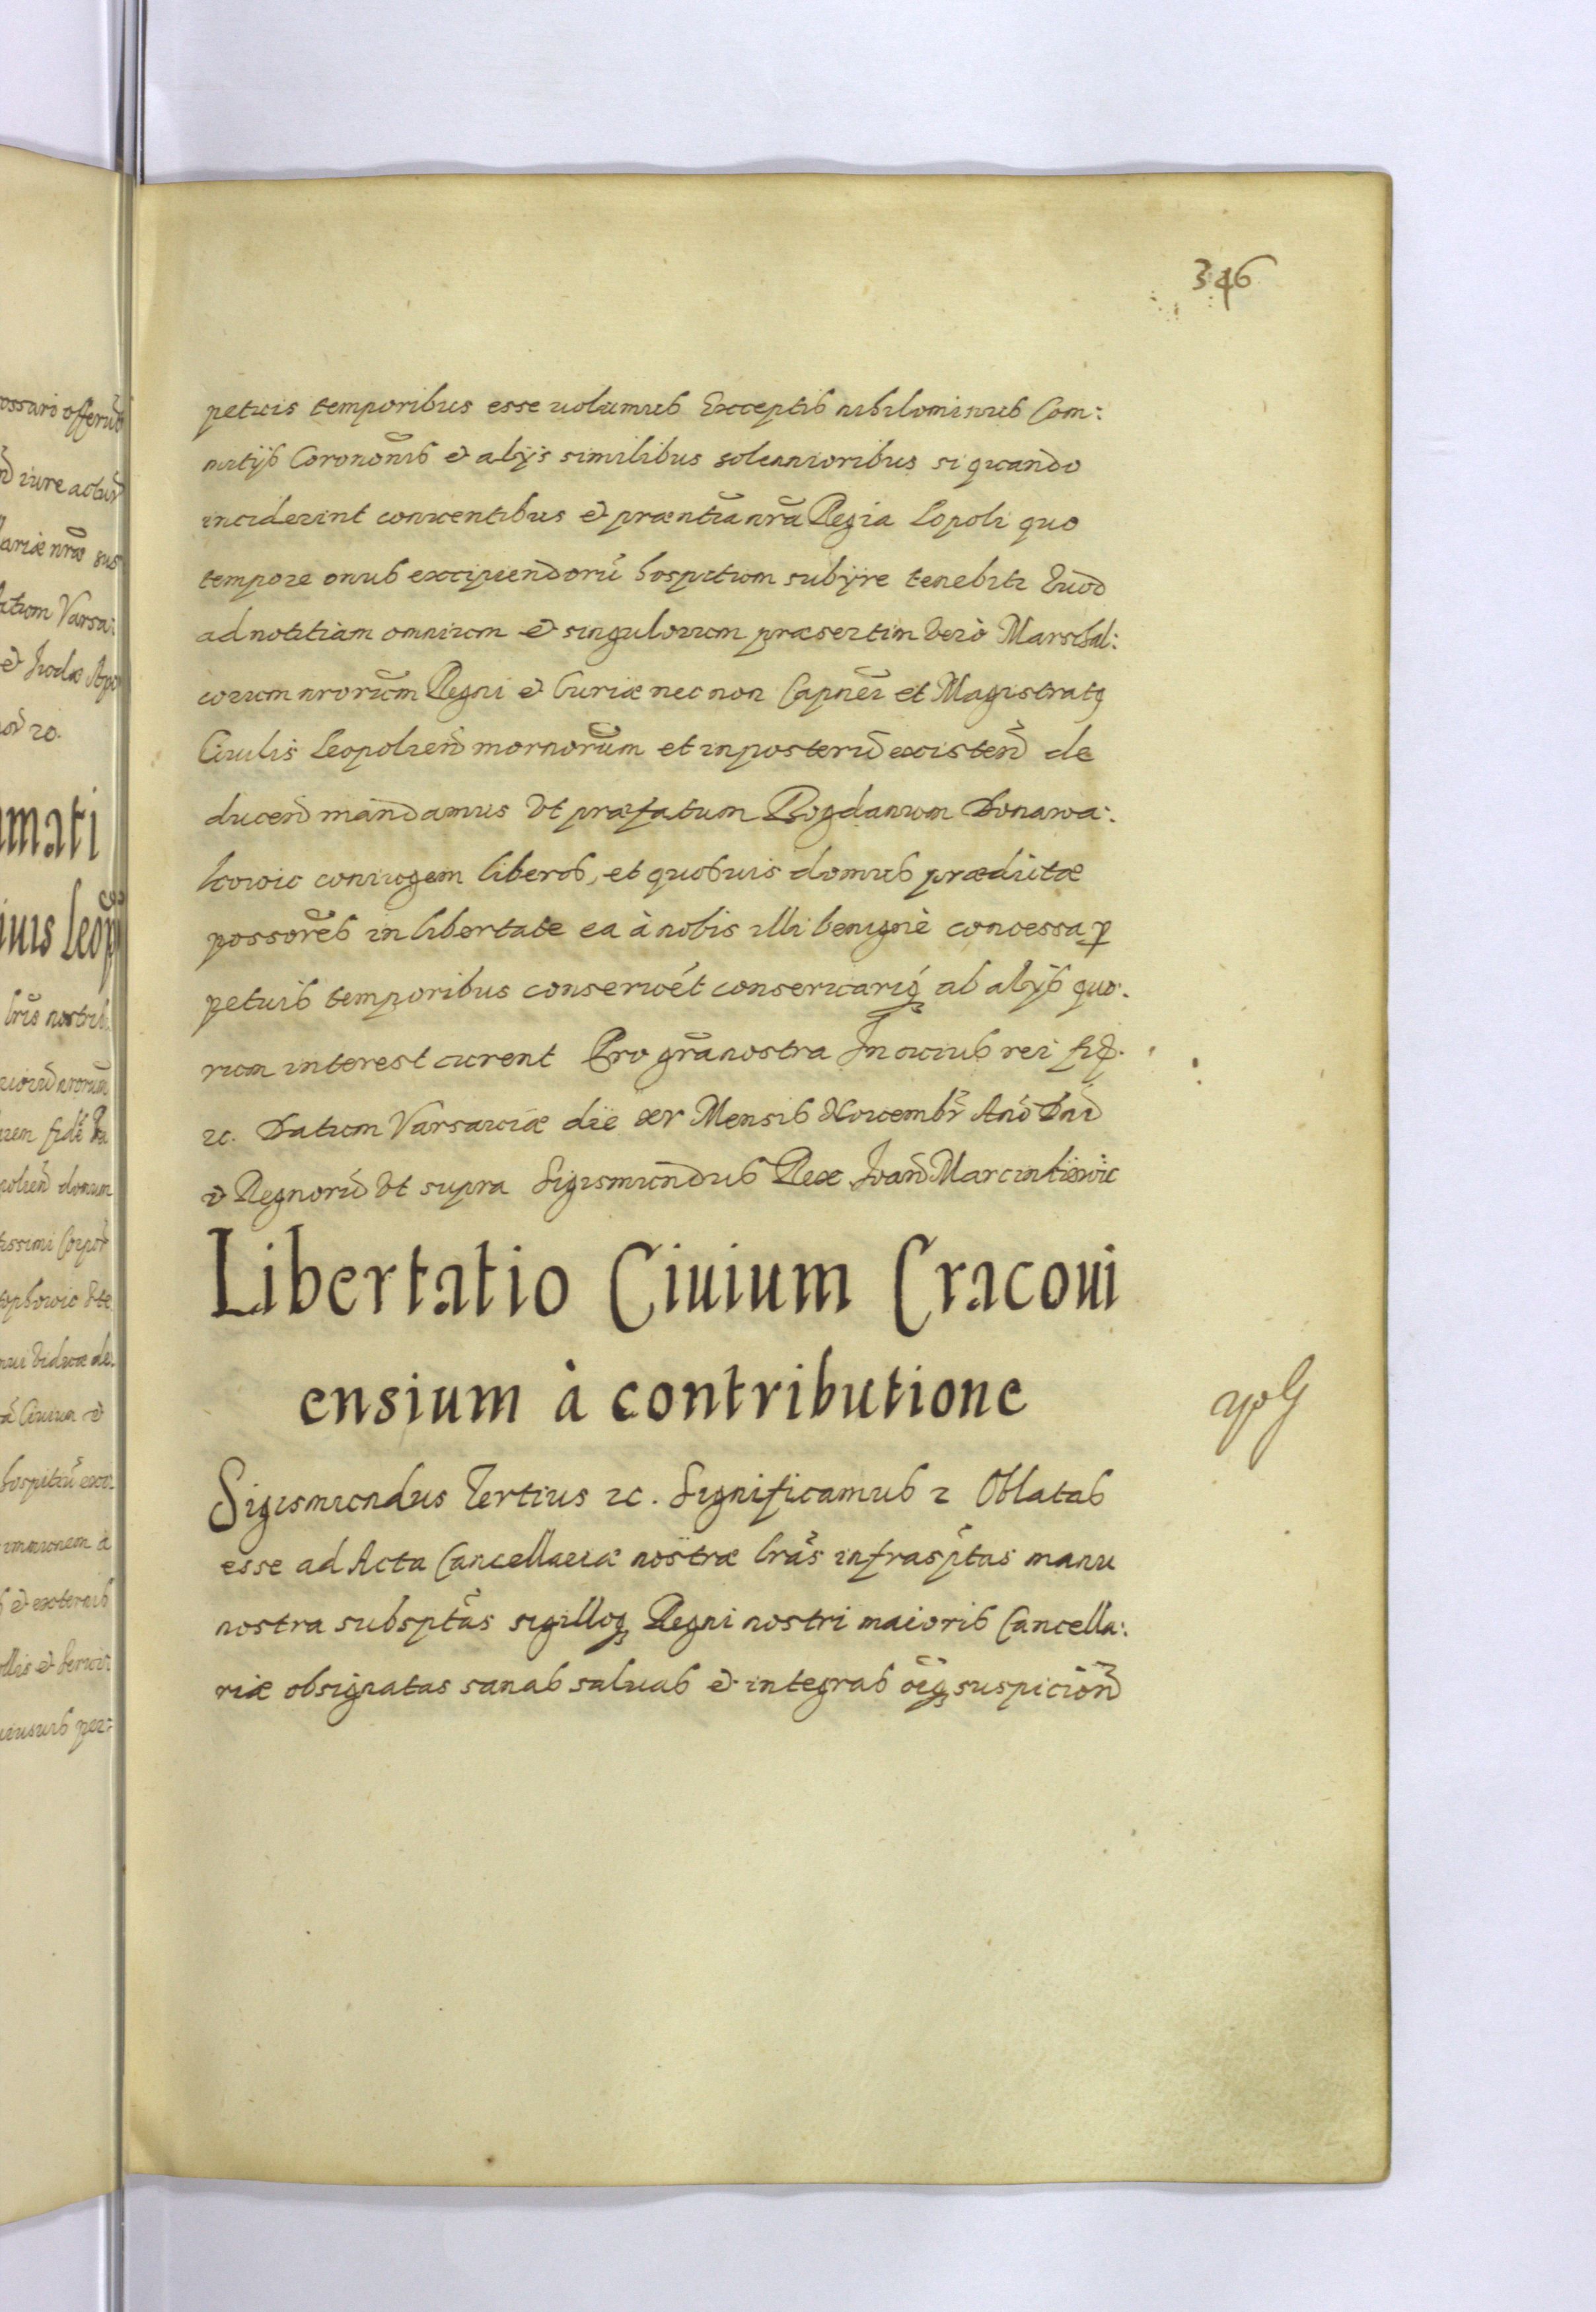 346
petuis temporibus esse uolumus Exceptis nihilominus Com:
mitijs Coronõnis et alijs similibus solennioribus si quando
inciderint conuentibus et præntia nrã Regia Lopoli quo
tempore onus excipiendorũ hospitum subijre tenebitr Quod
ad notitiam omnium et singulorum præsertim vero Marschal:
corum nrorum Regni et Curiæ nec non Capnei et Magistratq
Ciuilis Leopolien mornorum et inposterũ existen de
ducen mandamus vt præfatum Bogdanum Donawa:
kowic coniugem liberos, et quosuis domus prædictæ
possores in libertate ea à nobis illi benignè concessa p
petuis temporibus conseruet conseruariq ab alijs quo:
rum interest curent Pro gra nostra In cuius rei fid.
ꝛc. Datum Varsauiæ die xv Mensis Nouembr Ano Dni
et Regnorũ vt supra Sigismundus Rex Ioan Marcinkiewic
Libertatio Ciuium Cracoui
ensium à contributione
Sigismundus Tertius ꝛc. Significamus ꝛ Oblatas
esse ad Acta Cancellariæ nostræ lras infrasptas manu
nostra subsptas sigilloq Regni nostri maioris Cancella:
riæ obsignatas sanas saluas et integras oiq suspicion